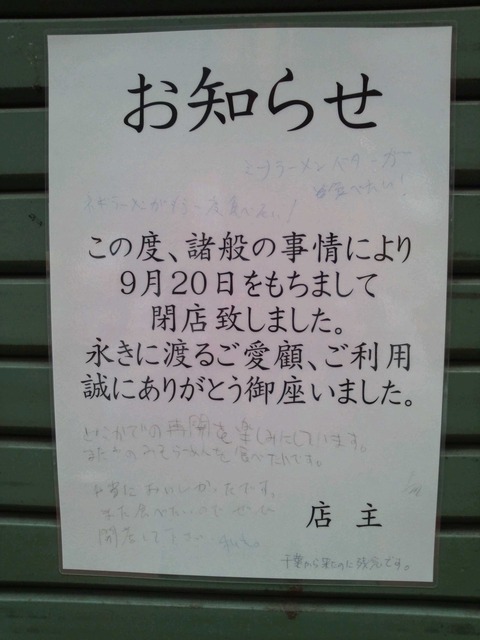 お知らせ
ミソラーメンバター
食べたい!
もう一度食べたい!
この度、諸般の事情により
9月20日をもちまして
閉店致しました。
永きに渡るご愛顧、ご利用
誠にありがとう御座いました。
どこかでの再開を楽しみにしています。
またみそらーめんを食べたいです。
本当においしかったです。
また食べたいのでぜひ
開店して下さい
店 主
千葉から来たのに残念です。